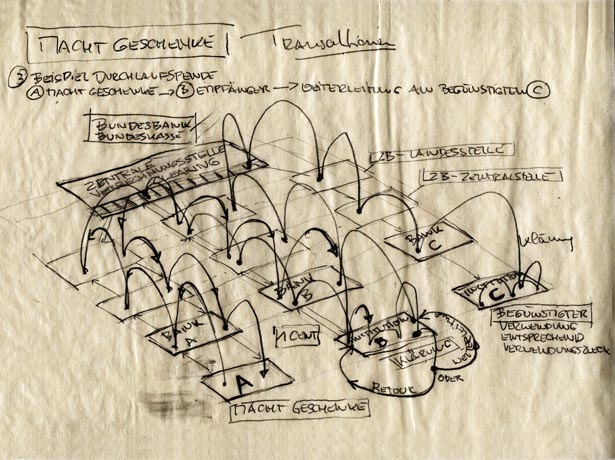 MACHT GESCHENKE
③ BEISPIEL DURCHLAUFSPENDE
Ⓐ MACHT GESCHENKE → Ⓑ EMPFÄNGER → WEITERLEITUNG AN BEGÜNSTIGTEN Ⓒ
BUNDESBANK
BUNDESKASSE
ZENTRALE
VERRECHNUNGSSTELLE
CLEARING
LZB-LANDESSTELLE
LZB-ZENTRALSTELLE
BANK
C
KLÄRUNG
INSTITUTION
C
BANK
B
BEGÜNSTIGTER
VERWENDUNG
ENTSPRECHEND
VERWENDUNGSZWECK
BANK
A
INSTITUTION
B
KLÄRUNG
ODER
RETOUR
A
MACHT GESCHENKE